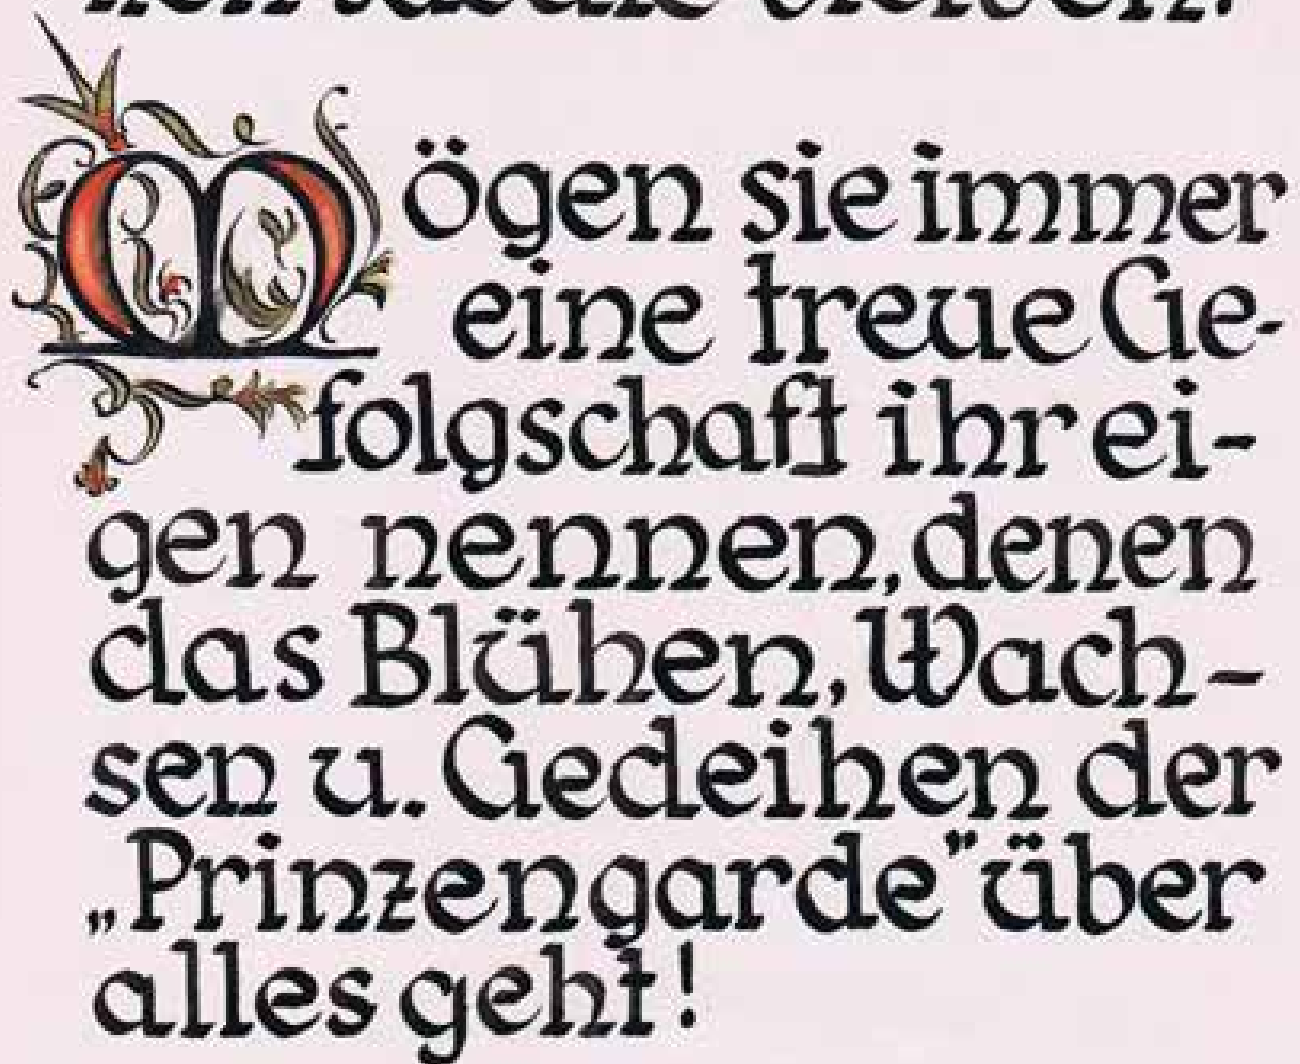 Mögen sie immer
eine treue Ge-
folgschaft ihr ei-
gen nennen, denen
das Blühen, Wach-
sen u. Gedeihen der
„Prinzengarde" über
alles geht!